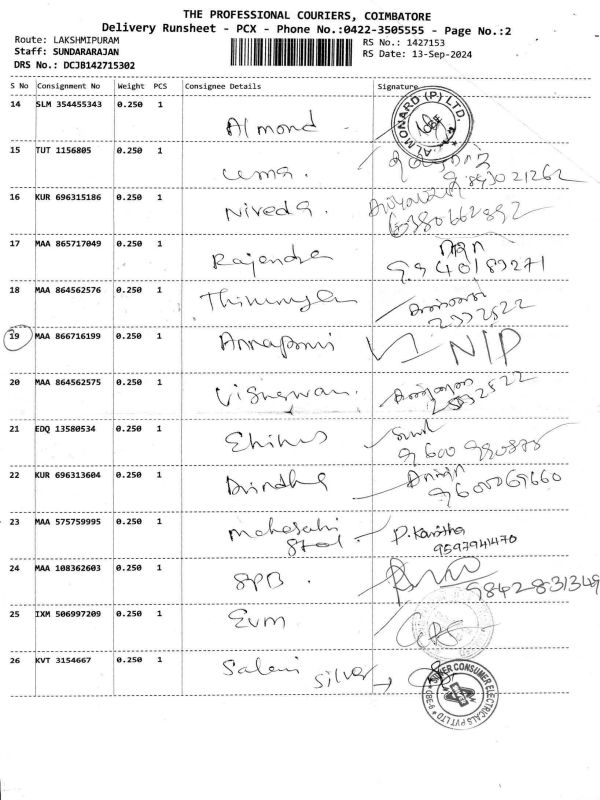 THE PROFESSIONAL COURIERS, COIMBATORE
Delivery Runsheet - PCX - Phone No.:0422-3505555 - Page No.:2
Route: LAKSHMIPURAM
Staff: SUNDARARAJAN
DRS No.: DCJB142715302
RS No.: 1427153
RS Date: 13-Sep-2024
S No Consignment No Weight PCS Consignee Details Signature
14 SLM 354455343 0.250 1 Almond
ALMONARD (P) LTD.
15 TUT 1156805 0.250 1 uma.
16 KUR 696315186 0.250 1 Niveda.
6380662892
17 MAA 865717049 0.250 1 Rajendra
9940189271
18 MAA 864562576 0.250 1
2522522
19 MAA 866716199 0.250 1 N/P
20 MAA 864562575 0.250 1
21 EDQ 13580534 0.250 1
22 KUR 696313604 0.250 1
23 MAA 575759995 0.250 1 P. Kavitha
9597941470
24 MAA 108362603 0.250 1 SPB.
9842831349
25 IXM 506997209 0.250 1 Evm
26 KVT 3154667 0.250 1 Salani
Silver
SUPER CONSUMER ELECTRICALS PVT LTD
CBE-9